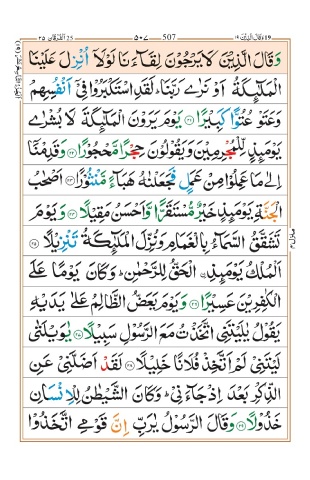 وقال الذین ۱۹ ۵۰۷ 507 الفرقان ۲۵
وَقَالَ الَّذِیْنَ لَا یَرْجُوْنَ لِقَآءَنَا لَوْلَاۤ اُنْزِلَ عَلَیْنَا
الْمَلٰٓىِٕكَةُ اَوْ نَرٰی رَبَّنَاؕ لَقَدِ اسْتَكْبَرُوْا فِیْۤ اَنْفُسِهِمْ
وَعَتَوْ عُتُوًّا كَبِیْرًا ۲۱ یَوْمَ یَرَوْنَ الْمَلٰٓىِٕكَةَ لَا بُشْرٰی
یَوْمَىِٕذٍ لِّلْمُجْرِمِیْنَ وَیَقُوْلُوْنَ حِجْرًا مَّحْجُوْرًا ۲۲ وَقَدِمْنَاۤ
اِلٰی مَا عَمِلُوْا مِنْ عَمَلٍ فَجَعَلْنٰهُ هَبَآءً مَّنْثُوْرًا ۲۳ اَصْحٰبُ
الْجَنَّةِ یَوْمَىِٕذٍ خَیْرٌ مُّسْتَقَرًّا وَّاَحْسَنُ مَقِیْلًا ۲۴ وَیَوْمَ
تَشَقَّقُ السَّمَآءُ بِالْغَمَامِ وَنُزِّلَ الْمَلٰٓىِٕكَةُ تَنْزِیْلًا ۲۵
اَلْمُلْكُ یَوْمَىِٕذِ ِۨالْحَقُّ لِلرَّحْمٰنِؕ وَكَانَ یَوْمًا عَلَی
الْكٰفِرِیْنَ عَسِیْرًا ۲۶ وَیَوْمَ یَعَضُّ الظَّالِمُ عَلٰی یَدَیْهِ
یَقُوْلُ یٰلَیْتَنِی اتَّخَذْتُ مَعَ الرَّسُوْلِ سَبِیْلًا ۲۷ یٰوَیْلَتٰی
لَیْتَنِیْ لَمْ اَتَّخِذْ فُلَانًا خَلِیْلًا ۲۸ لَقَدْ اَضَلَّنِیْ عَنِ
الذِّكْرِ بَعْدَ اِذْ جَآءَنِیْؕ وَكَانَ الشَّیْطٰنُ لِلْاِنْسَانِ
خَذُوْلًا ۲۹ وَقَالَ الرَّسُوْلُ یٰرَبِّ اِنَّ قَوْمِی اتَّخَذُوْا